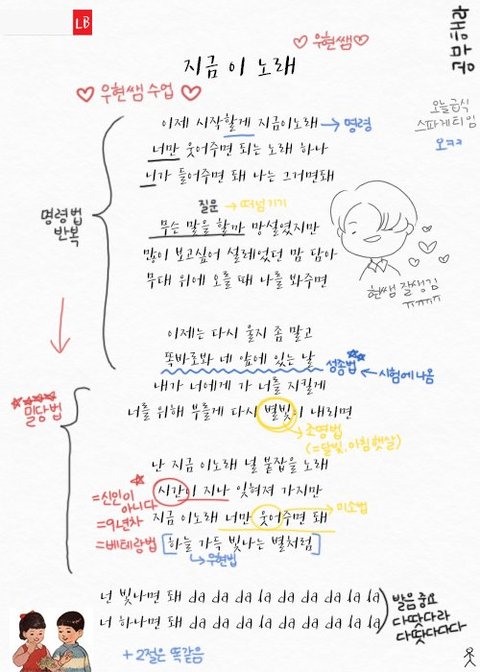 LB
♡ 우현쌤 ♡
공부해라
지금 이 노래
♡ 우현쌤 수업 ♡
오늘급식
스파게티임
오ㅋㅋ
이제 시작할게 지금이노래 → 명령
너만 웃어주면 되는 노래 하나
니가 들어주면 돼 나는 그거면돼
명령법
반복
질문 → 떠넘기기
무슨 말을 할까 망설였지만
많이 보고싶어 설레었던 맘 담아
무대 위에 오를 때 나를 봐주면
현쌤 잘생김
ㅠㅠㅠㅠ
이제는 다시 울지 좀 말고
똑바로봐 네 앞에 있는 날
성종법 ← 시험에 나옴
내가 너에게 가 너를 지킬게
밀당법
너를 위해 부를게 다시 별빛이 내리면
조명법
(=달빛.아침햇살)
난 지금 이노래 널 붙잡을 노래
시간이 지나 잊혀져 가지만
=신인이
아니다
=9년차
=베테랑법
지금 이노래 너만 웃어주면 돼
미소법
[하늘 가득 빛나는 별처럼]
→ 우현법
넌 빛나면 돼 da da da da da da da la la
너 하나면 돼 da da da da da da da la la
발음중요
다땃다라
다땃다다다
+2절은 똑같음